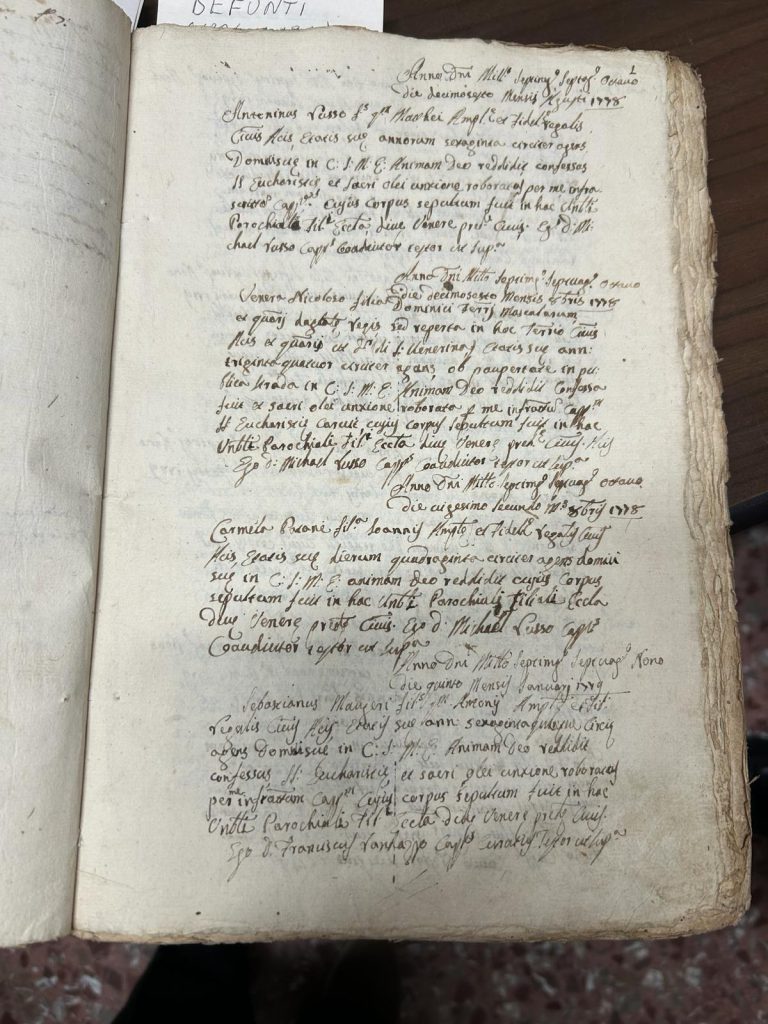 DEFUNTI
1
Anno Dni Mill.º Septing.º Septuag.º Octavo
die decimosexto Mensis Augusti 1778
Antoninus Russo f.s q.m Matthei Ampl.e et fidel. regalis
Civis Acis, Etatis suę annorum sexaginta circiter agens
Domi suę in C: S: M: E: Animam Deo reddidit confessus
SS Eucharistię et sacri olei unxione roboratus per me infra
scriptū Capp.num Cujus corpus sepultum fuit in hac
Parochiali fil.e Eccta, divę Venerę Civis. Eg.o D: Mi-
chael Russo Capp.s Coadiutor testor ut sup.a
Anno Dni Millo Septing.º Septuag.º Octavo
die decimosexto Mensis 8bris 1778
Venera Nicoloso filia Dominici Terrę Mascalarum
et regis sed reperta in hoc Terrio Civis
Acis et di S: Venerina Etatis suę ann:
triginta quatuor circiter agens ob paupertate in pu-
blica strada in C: S: M: E: Animam Deo reddidit Confessa
fuit et sacri olei unxione roborata p me infrattū Capp.m
SS Eucharistię caruit, cujus corpus sepultum fuit in hac
Parochiali fil.e Eccta divę Venerę Civis. Acis
Ego D: Michael Russo Capp.s Coadiutor testor ut sup.a
Anno Dni Millo Septing.º Septuag.º Octavo
die vigesimo secundo M.s 8bris 1778
Carmela Patanè fil.a Ioannis Ampl. et fidel. regalis Civis
Acis, Etatis suę dierum quadraginta circiter agens domui
suę in C: S: M: E: animam Deo reddidit cujus Corpus
sepultum fuit in hac Parochiali filiali Eccta
divę Venerę Civis. Ego D: Michael Russo Capp.s
Coadiutor testor ut sup.a
Anno Dni Millo Septing.º Septuag.º Nono
die quinto Mensis Januarij 1779
Sebastianus Maugeri fil.s q.m Antonij Ampl. et fil.
regalis Civis Acis Etatis suę ann: sexaginta circis
agens Domi suę in C: S: M: E: Animam Deo reddidit
confessus SS: Eucharistię et sacri olei unxione roboratus
per me infrattum Capp.m Cujus corpus sepultum fuit in hac
Parochiale fil.e Eccta divę Venerę Civis.
Ego D. Franciscus Capp.s Curatus testor ut sup.a